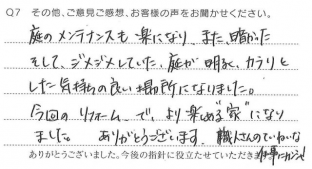 Q7 その他、ご意見ご感想、お客様の声をお聞かせください。
庭のメンテナンスも楽になり、また、暗かった
そして、ジメジメしていた、庭が明るく、カラリと
した気持ちの良い場所になりました。
今回のリフォームで、より楽しめる"家"になり
ました。 ありがとうございます。 職人さんのていねいな
仕事にカンシャ!
ありがとうございました。今後の指針に役立たせていただきま